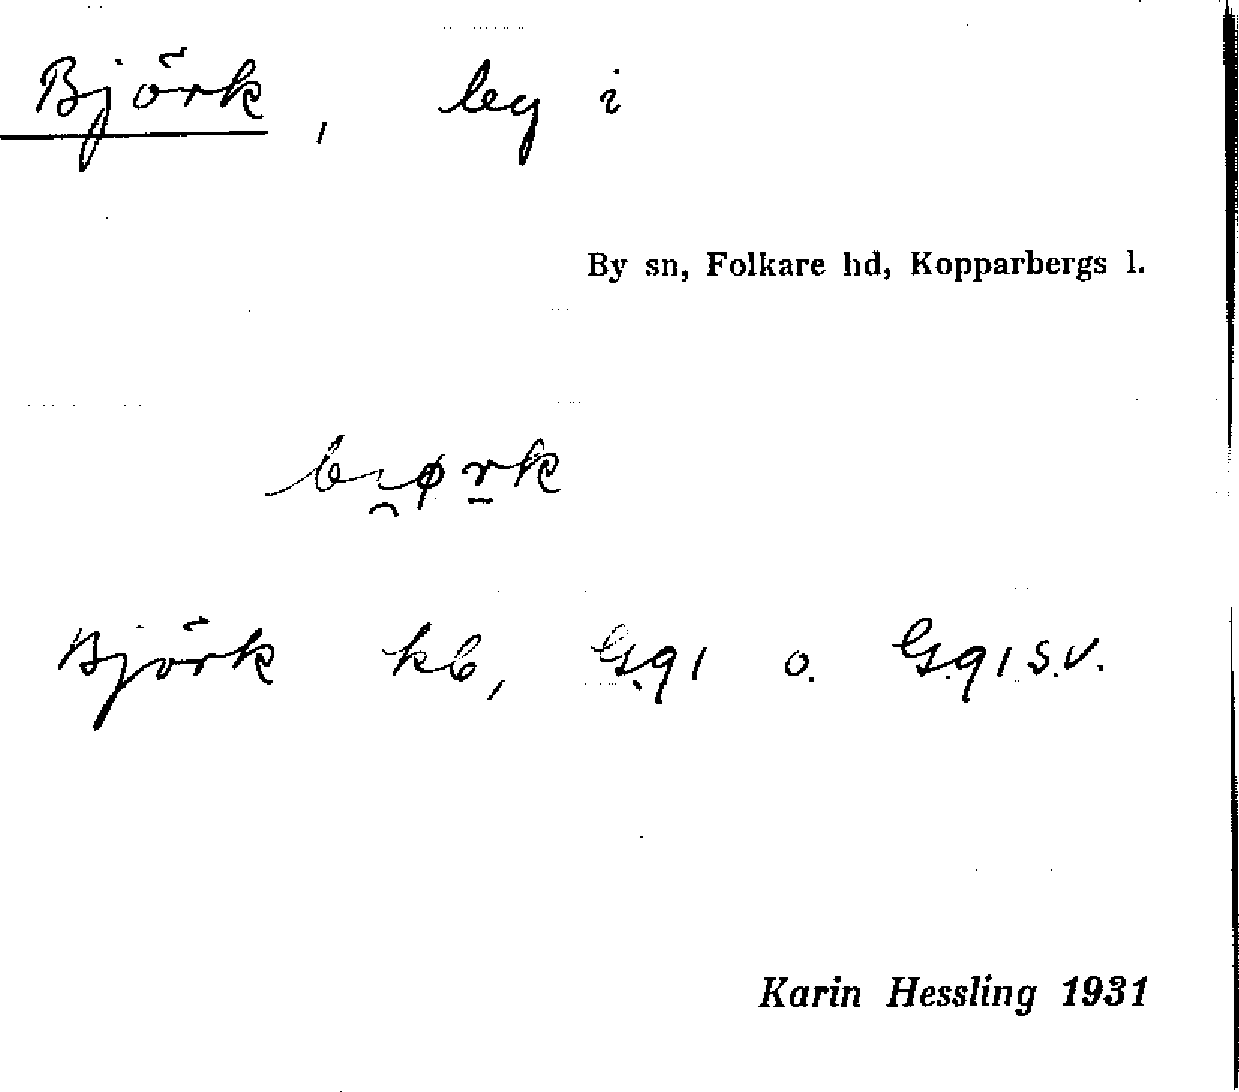 Björk, leg i
By sn, Folkare hd, Kopparbergs l.
bi̯ørk
Björk kb, G.91 o. G.91 s.v.
Karin Hessling 1931